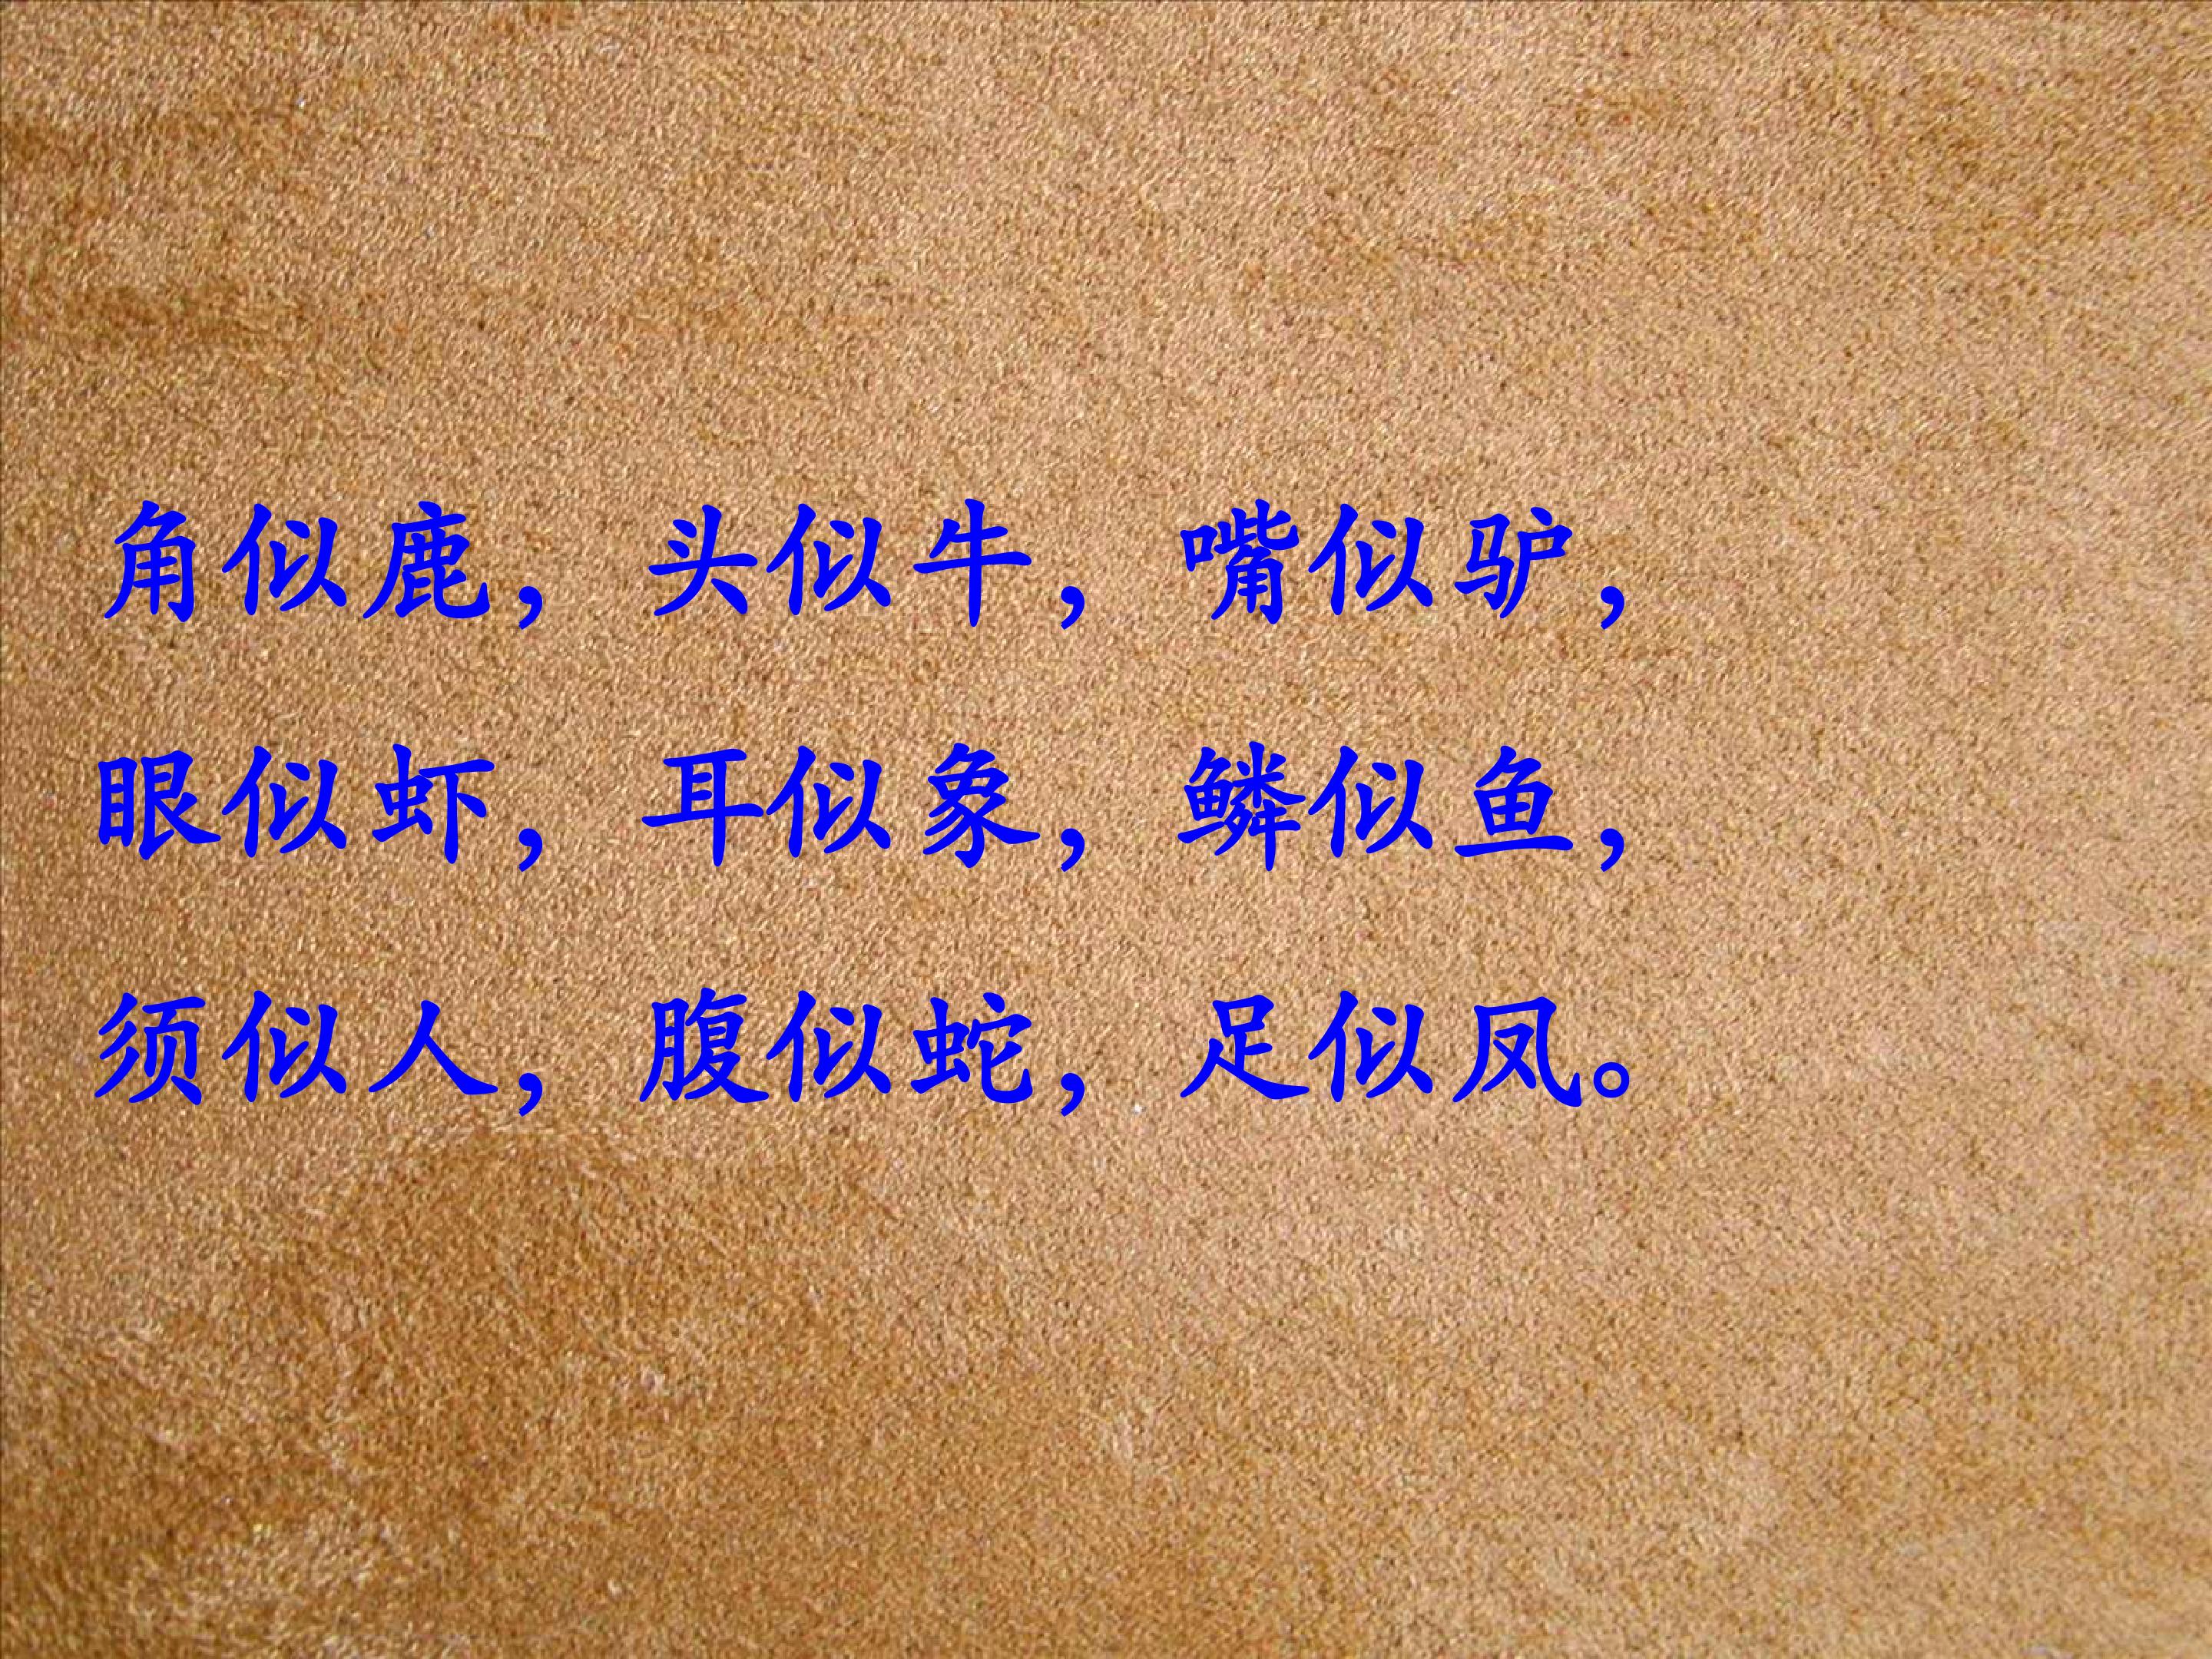 角似鹿，头似牛，嘴似驴，
眼似虾，耳似象，鳞似鱼，
须似人，腹似蛇，足似凤。